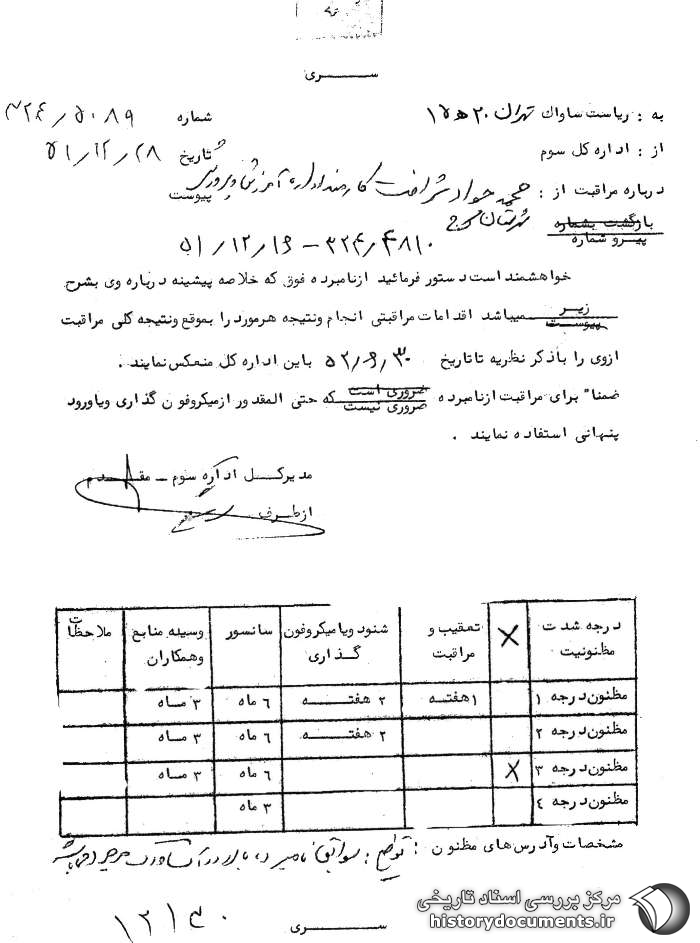 ســـری
به : ریاست ساواك تهران ۲۰ ه ۱۵
شماره ۳۲۴/۵۰۸۹
از : اداره کل سوم
تاریخ ۵۱/۱۲/۲۸
درباره مراقبت از : محمد جواد شرافت کارمند اداره آموزش و پرورش
پیوست
شهرستان کرج
بازگشت بشماره
پیرو شماره
۳۲۴/۴۸۱۰ – ۵۱/۱۲/۱۶
خواهشمند است دستور فرمائید ازنامبرده فوق که خلاصه پیشینه درباره وی بشرح
زیر
پیوست
میباشد اقدامات مراقبتی انجام ونتیجه هرمورد را بموقع ونتیجه کلی مراقبت
ازوی را باذکر نظریه تا تاریخ ۵۲/۶/۳۰ باین اداره کل منعکس نمایند .
ضمنا" برای مراقبت ازنامبرده ضروری است
ضروری نیست
که حتی المقدور ازمیکروفون گذاری ویاورود
پنهانی استفاده نمایند .
مدیرکــل اداره سوم – مقــدم
ازطرف
درجه شدت مظنونیت X تعقیب و مراقبت شنود ویا میکروفون گذاری سانسور وسیله منابع وهمکاران ملاحظات
مظنون درجه ۱ ۱ هفته ۲ هفتــه ۶ ماه ۳ مــاه
مظنون درجه ۲ ۲ هفتــه ۶ ماه ۳ مــاه
مظنون درجه ۳ X ۶ ماه ۳ مــاه
مظنون درجه ۴ ۳ ماه
مشخصات وآدرس های مظنون : توضیح : سوابق نامبرده بالا در آن ساواک موجود میباشد
۱۲۱۴۰
ســـری
مرکز بررسی اسناد تاریخی
historydocuments.ir